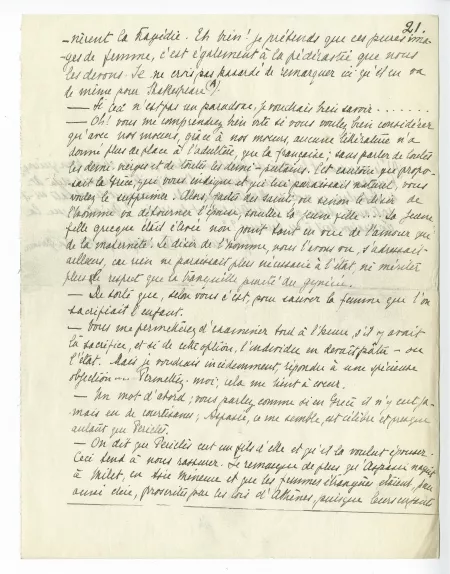 21.
-nèrent la tragédie. Eh bien! je prétends que ces pures ima-
-ges de femme, c'est également à la pédérastie que nous
les devons. Je ne crois pas hasardé de remarquer ici qu'il en va
de même pour Shakespeare (A).
— Si ceci n'est pas un paradoxe, je voudrais bien savoir .......
— Oh! vous me comprendrez bien vite si vous voulez bien considérer
qu'avec nos mœurs, grâce à nos mœurs, aucune littérature n'a
donné plus de place à l'adultère, que la française; sans parler de toutes
les demi-vierges et de toutes les demi-putains. Cet exutoire que propo-
-sait la Grèce, qui vous indigne et qui lui paraissait naturel, vous
voulez le supprimer. Alors, faites des saints; ou sinon le désir de
l'homme va détourner l'épouse, souiller la jeune fille.... La jeune
fille grecque était élevée non point tant en vue de l'amour que
de la maternité. Le désir de l'homme, nous l'avons vu, s'adressait
ailleurs; car rien ne paraissait plus nécessaire à l'état, ni mériter
plus le respect que la tranquille pureté du gynécée.
— De sorte que, selon vous c'est, pour sauver la femme que l'on
sacrifiait l'enfant.
— Vous me permettrez d'examiner tout à l'heure, s'il y avait
là sacrifice, et si de cette option, l'individu en devait pâtir — ou
l'état. Mais je voudrais incidemment, répondre à une spécieuse
objection.... Permettez-moi; cela me tient à cœur.
— Un mot d'abord; vous parlez comme si en Grèce il n'y eut ja-
mais eu de courtisanes; Aspasie, ce me semble, est célèbre et presque
autant que Périclès.
— On dit que Périclès eut un fils d'elle et qu'il la voulut épouser.
Ceci tend à nous rassurer. Je remarque de plus qu'Aspasie naquit
à Milet, en Asie Mineure et que les femmes étrangères étaient,
aussi dire, proscrites par les lois d'Athènes, puisque leurs enfants